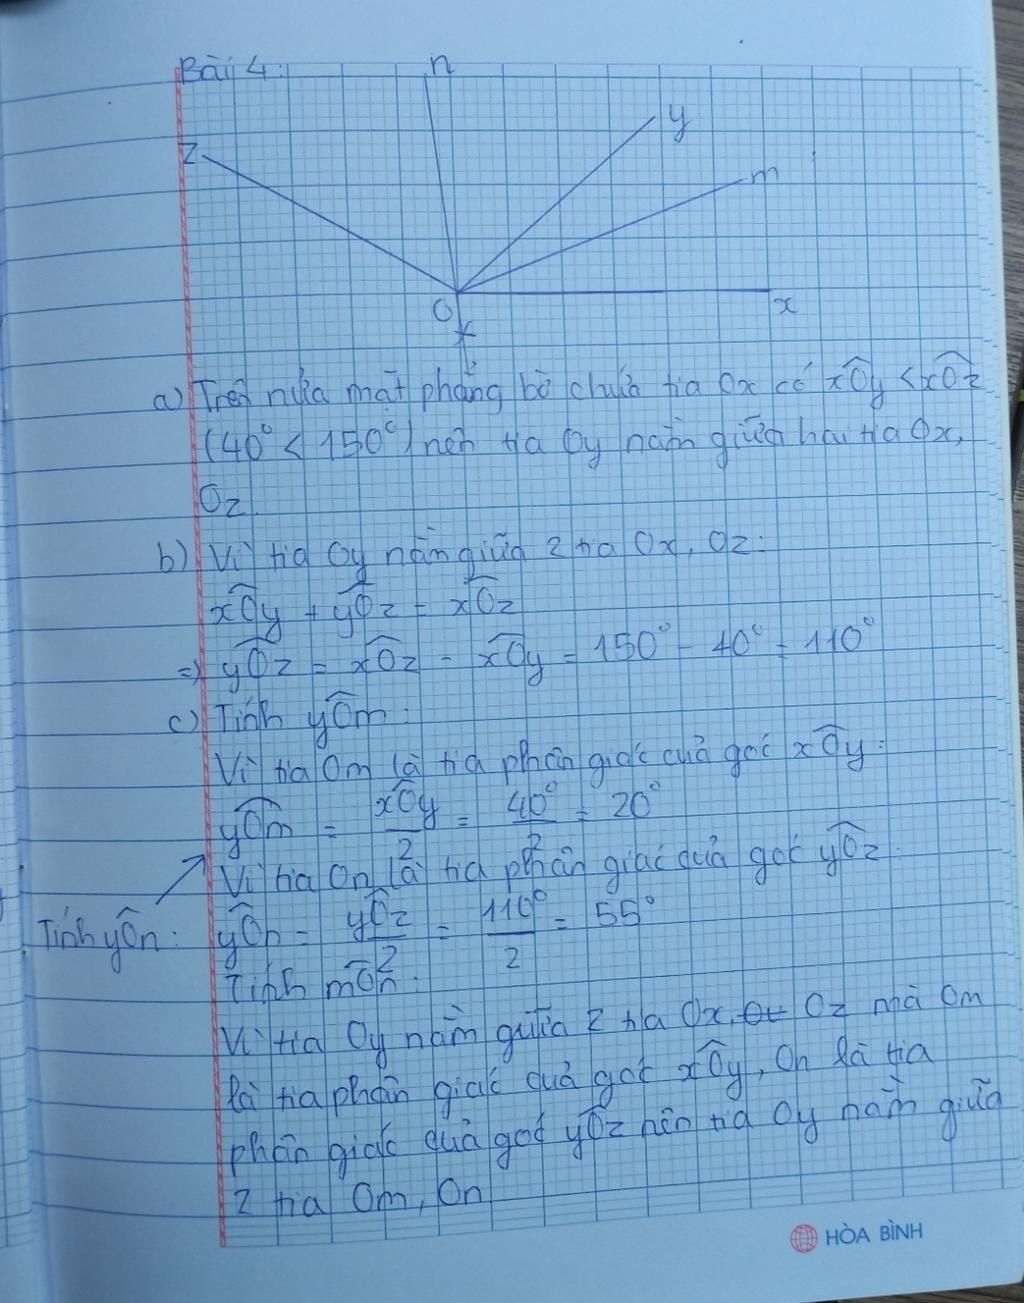 Bài 4:
n
y
z
m
O
x
a) Trên nửa mặt phẳng bờ chứa tia Ox có xÔy < xÔz
(40° < 150°) nên tia Oy nằm giữa hai tia Ox,
Oz.
b) Vì tia Oy nằm giữa 2 tia Ox, Oz:
xÔy + yÔz = xÔz
=> yÔz = xÔz - xÔy = 150° - 40° = 110°
c) Tính yÔm:
Vì tia Om là tia phân giác của góc xÔy:
yÔm = xÔy/2 = 40°/2 = 20°
Vì tia On là tia phân giác của góc yÔz:
Tính yÔn: yÔn = yÔz/2 = 110°/2 = 55°
Tính mÔn:
Vì tia Oy nằm giữa 2 tia Ox, Oz mà Om
là tia phân giác của góc xÔy, On là tia
phân giác của góc yÔz nên tia Oy nằm giữa
2 tia Om, On
HÒA BÌNH